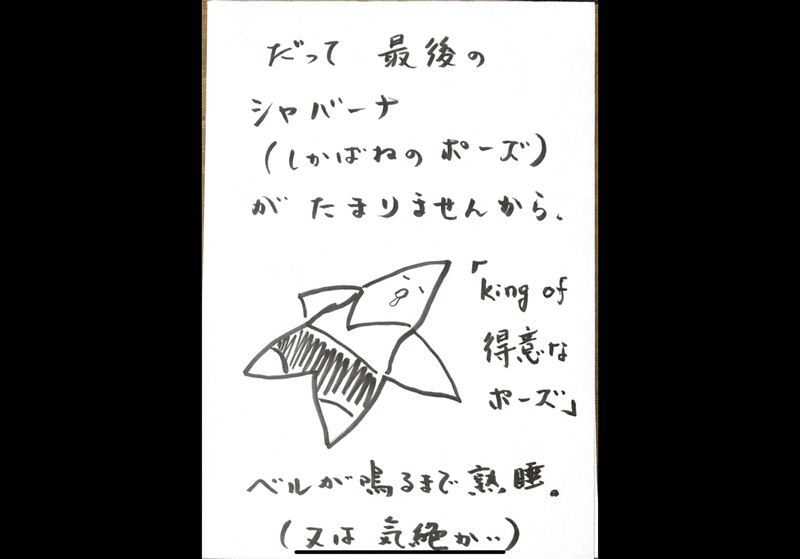 だって 最後の
シャバーナ
(しかばねの ポーズ)
が たまりませんから、
「king of
得意な
ポーズ」
ベルが鳴るまで熟睡。
(又は 気絶か‥)